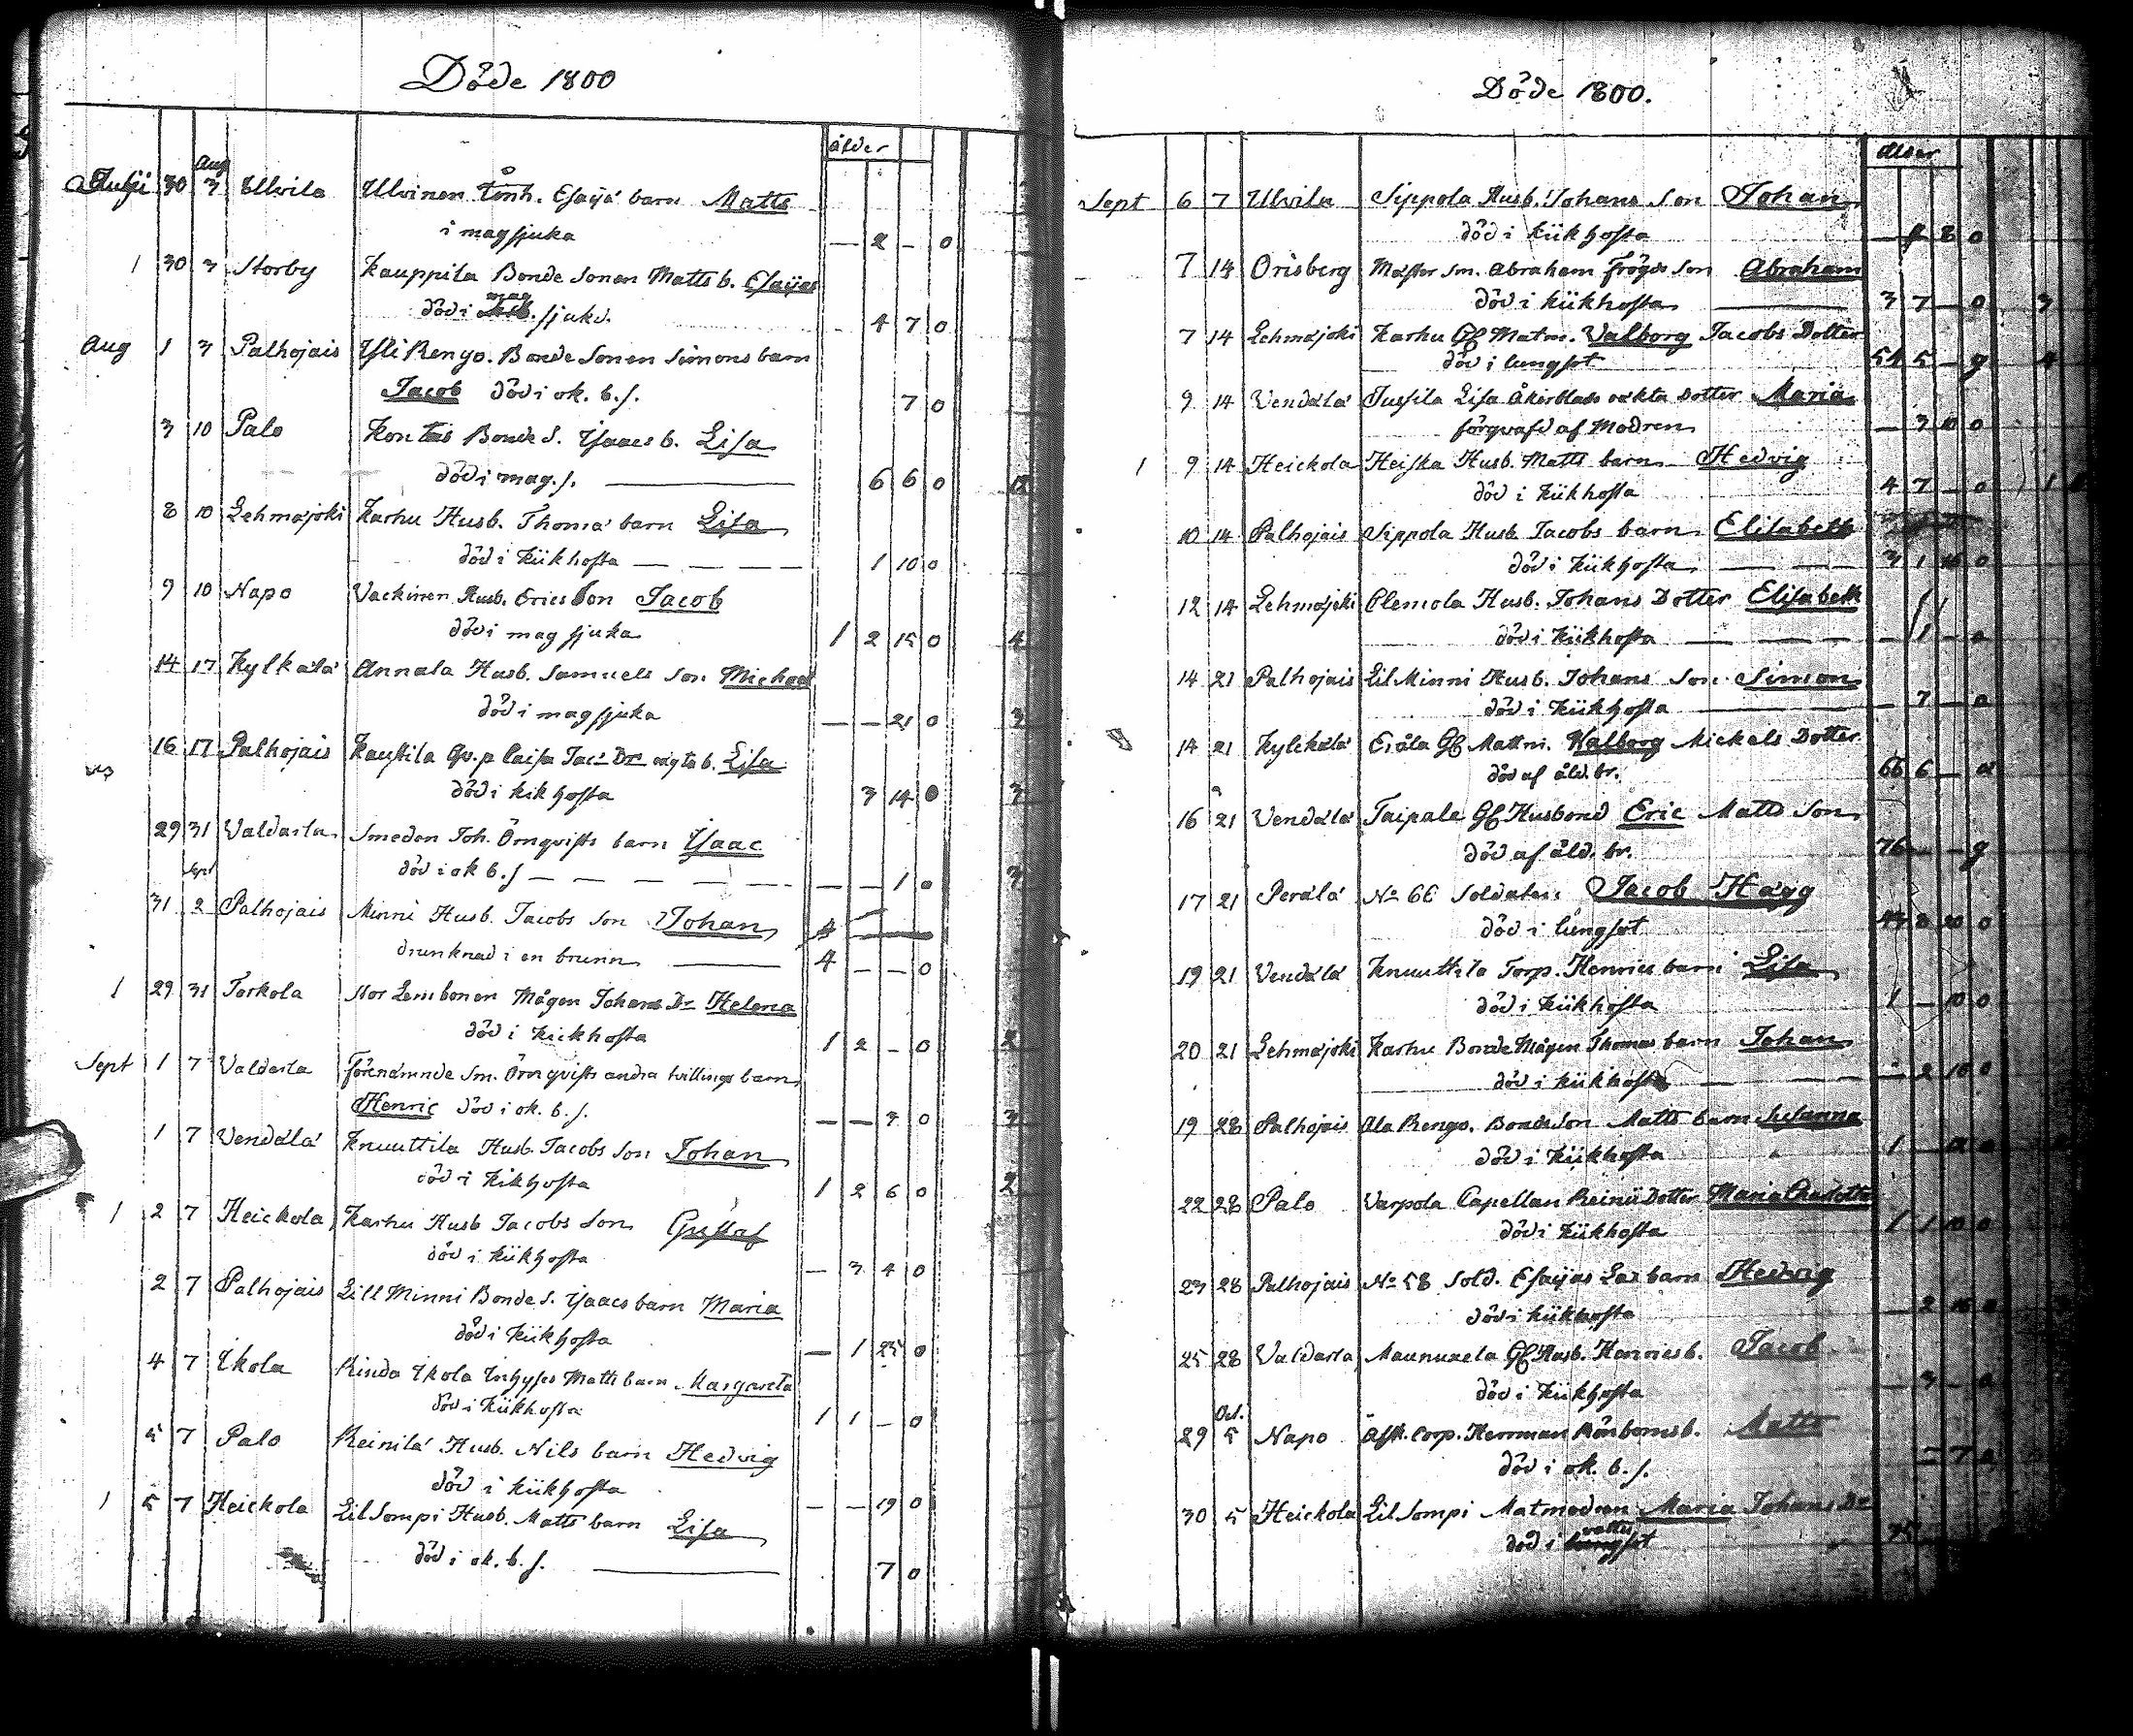 Döde 1800
ålder
Julii 30 Aug 3 Ulvila Ulvinen Esaiæ barn Matts
i magsjuka — 2 — 0
1 30 3 Storby Kauppila Bonde Sonen Matts b. Esaijas
död i mag sjukd. 4 7 0
Aug 1 3 Palhojais Yli Rengo. Bonde Sonen Simons barn
Jacob död i ok. b. s. 7 0
3 10 Palo Kontas Bonde S. Isaacs b. Lisa
död i mag. s. 6 6 0
8 10 Lehmäjoki Karhu Husb. Thomæ barn Lisa
död i Kikhosta 1 10 0
9 10 Napo Vackinen Husb. Erics Son Jacob
död i mag sjuka 1 2 15 0 4
14 17 Kylkälä Annala Husb. Samuels Son Michael
död i magsjuka — — 21 0 3
16 17 Palhojais Kaukila Lisa Jac: Dr b. Lisa
död i kikhosta 3 14 0 3
29 31 Valdasta Smeden Joh. Örnqvists barn Isaac
död i ok b. s — — 1 0 3
31 Sept 2 Palhojais Minni Husb. Jacobs Son Johan
drunknad i en brunn 4 — — 0
1 29 31 Torkola Stor Lembonen Mågen Johans Dr Helena
död i Kickhosta 1 2 — 0 2
Sept 1 7 Valdasta Förenämnde Sm. Örnqvists andra tvillings barn
Henric död i ok. b. s. — — 3 0 3
1 7 Vendälä Knuuttila Husb. Jacobs Son Johan
död i Kikhosta 1 2 6 0 2
1 2 7 Heickola Karhu Husb Jacobs Son Gustaf
död i Kiikhosta — 3 4 0
2 7 Palhojais Lill Minni Bonde S. Isaacs barn Maria
död i Kiikhosta — 1 25 0
4 7 Ikola Rinda Ikola Inhyses Matts barn Margareta
död i Kiikhosta 1 1 — 0
5 7 Palo Reinilä Husb. Nils barn Hedvig
död i kiikhosta — — 19 0
1 5 7 Heickola Lil Sompi Husb. Matts barn Lisa
död i ok. b. s. 7 0
Döde 1800.
Ålder
Sept 6 7 Ulvila Sippola Husb. Johans Son Johan
död i kiikhosta 8 0
7 14 Orisberg Mäster Sm. Abraham Frögds Son Abraham
död i kiikhosta 3 7 — 0 3
7 14 Lehmäjoki Karhu Gl Matm. Valborg Jacobs Dotter
död i lungsot 54 5 — g 4
9 14 Vendälä Jussila Lisa Åkerblads oäkta Dotter Maria
förqvafd af Modren — 3 10 0
1 9 14 Heickola Heiska Husb. Matts barn Hedvig
död i Kiikhosta 4 7 — 0
10 14 Palhojais Sippola Husb Jacobs barn Elisabeth
död i Kiikhosta 3 1 16 0
12 14 Lehmäjoki Clemola Husb. Johans Dotter Elisabeth
död i Kiikhosta — 1 — 0
14 21 Palhojais Lil Minni Husb. Johans Son Simon
död i Kiikhosta — 7 — 0
14 21 Kylkälä Eräla Gl Mattm. Walborg Mickels Dotter
död af åld. br. 66 6 —
16 21 Vendälä Taipale Gl Husbond Eric Matts Son
död af åld. br. 76 — — g
17 21 Perälä No 66 Soldaten Jacob Hägg
död i lungsot 44 8 20 0
19 21 Vendälä Knuuttila Torp. Henrics barn Lisa
död i Kiikhosta 1 — 10 0
20 21 Lehmäjoki Karhu Bonde Mågen Thomas barn Johan
död i kiikhosta — 2 10 0
19 28 Palhojais Ala Rengo. Bonde Son Matts barn Susanna
död i Kiikhosta 1 —
22 28 Palo Varpola Capellan Reinii Dotter Maria Charlotta
död i Kiikhosta 1 1 10 0
23 28 Palhojais No 58 Sold. Esaijas Lax barn Hedvig
död i kiikhosta — 2 16 0
25 28 Valdasta Maunuxela Gl Husb. Henrics b. Jacob
död i Kiikhosta — 3 — 0
29 Oct. 5 Napo Afsk. Corp. Herrman Rönboms b. Matts
död i ok. b. s. — 7 0
30 5 Heickola Lil Sompi Matmodren Maria Johans Dr
död i vattusot 75